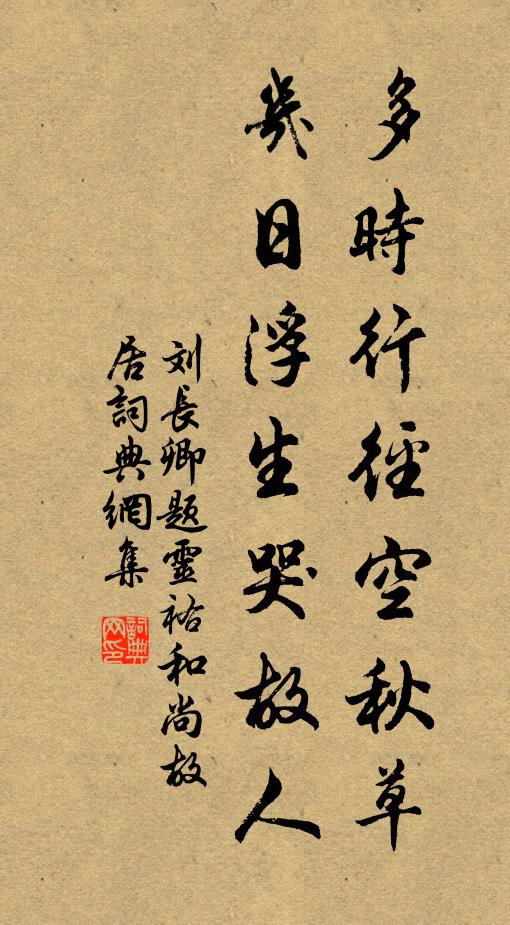 多時行徑空秋草
幾日浮生哭故人
刘長卿題靈祐和尚故
居詞典網集
詞典網印